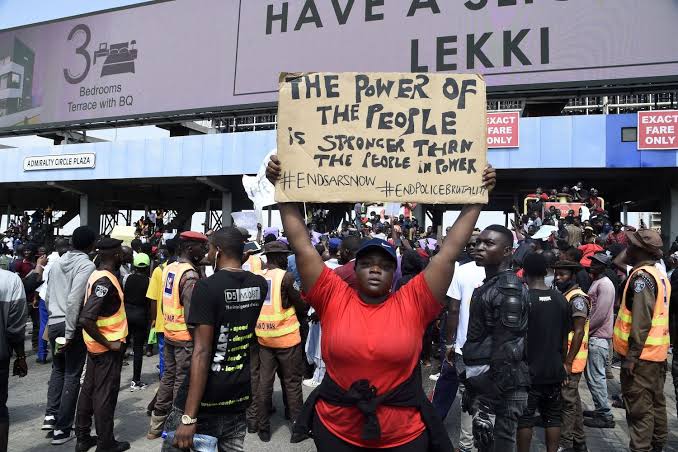 HAVE A SLICE
LEKKI
3
Bedrooms
Terrace with BQ
ADMIRALTY CIRCLE PLAZA
EXACT
FARE
ONLY
EXACT
FARE
ONLY
THE POWER OF
THE PEOPLE
is STRONGER THAN
THE PEOPLE in POWER
#ENDSARSNOW #ENDPOLICEBRUTALIT